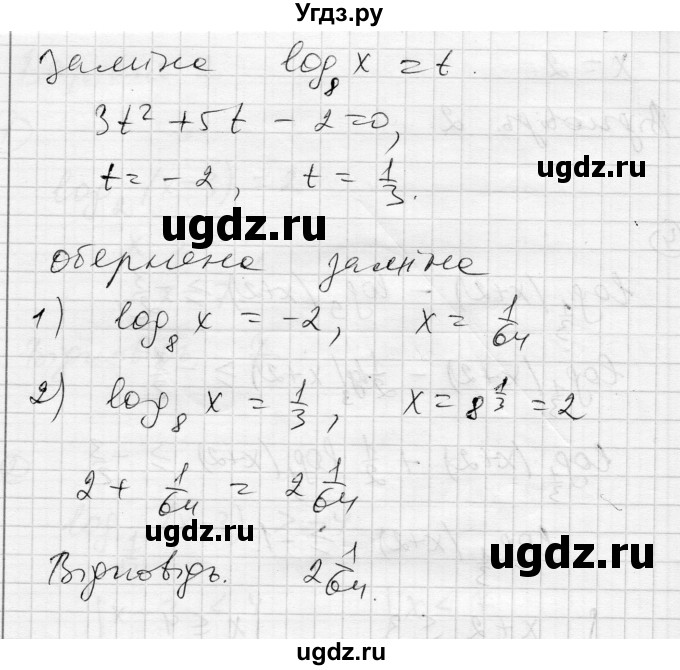 Угдз.ру
заміна log₈ x = t.
3t² + 5t − 2 = 0,
ugdz.ru
t = −2, t = 1/3.
ugdz.ru
обернена заміна
1) log₈ x = −2, x = 1/64
2) log₈ x = 1/3, x = 8^(1/3) = 2
2 + 1/64 = 2 1/64
ugdz.ru
ugdz.ru
Відповідь. 2 1/64.
ugdz.ru